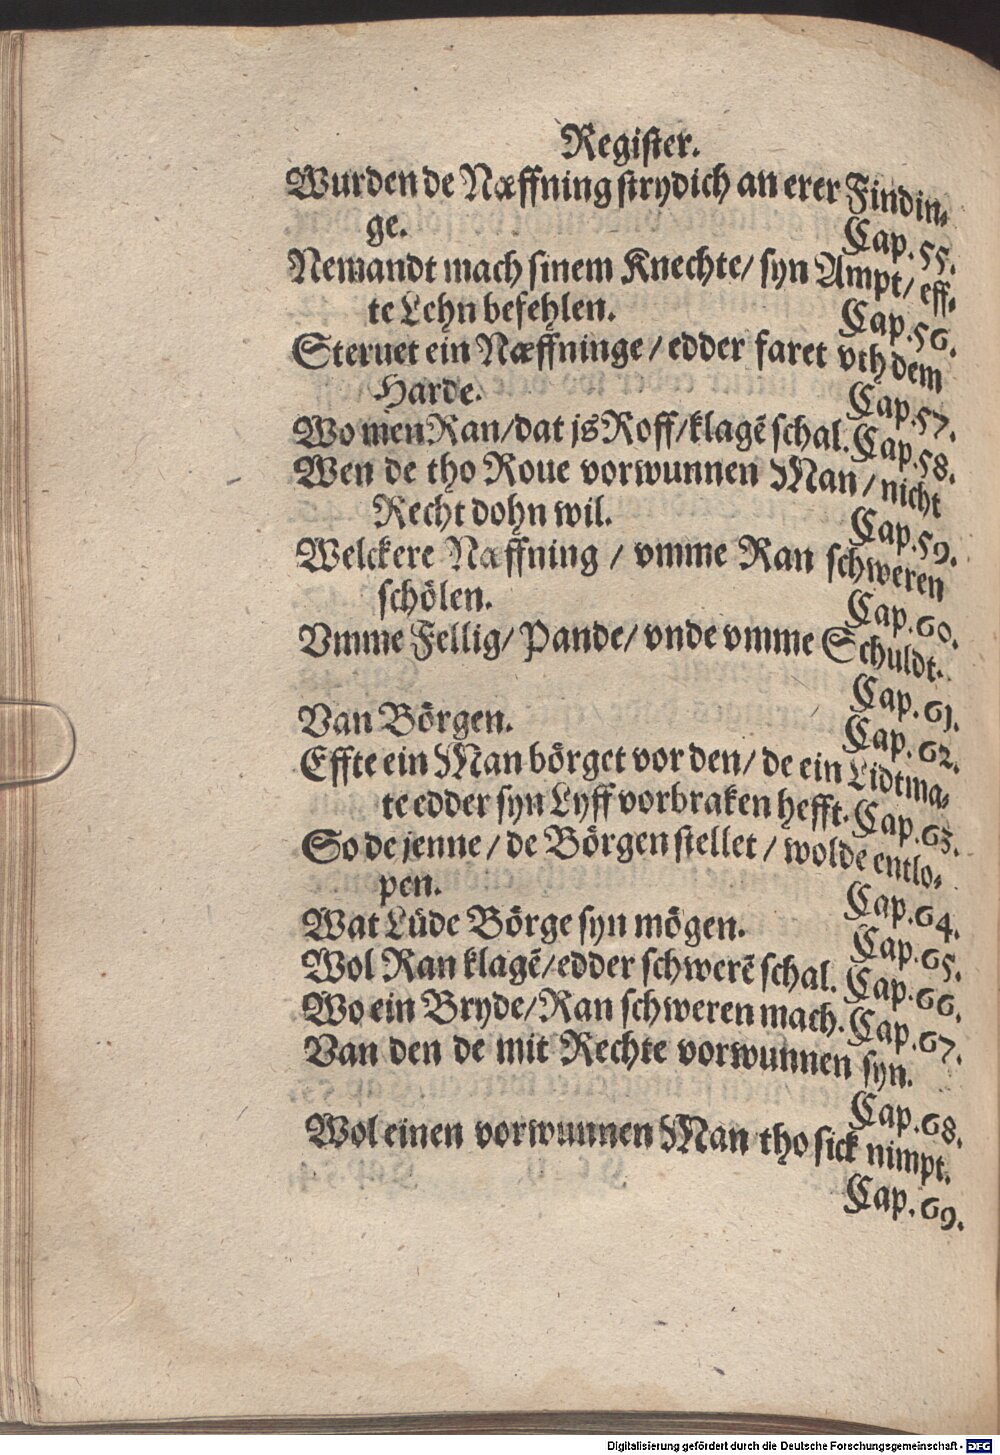 Register.
Wurden de Næffning strydich an erer Findin-
ge. Cap. 55.
Nemandt mach sinem Knechte/ syn Ampt/ eff-
te Lehn befehlen. Cap. 56.
Steruet ein Næffninge / edder faret vth dem
Harde. Cap. 57.
Wo men Ran/dat js Roff/klagē schal. Cap. 58.
Wen de tho Roue vorwunnen Man / nicht
Recht dohn wil. Cap. 59.
Welckere Næffning / vmme Ran schweren
schölen. Cap. 60.
Vmme Fellig/ Pande/ vnde vmme Schuldt.
Cap. 61.
Van Börgen. Cap. 62.
Effte ein Man börget vor den/ de ein Lidtma-
te edder syn Lyff vorbraken hefft. Cap. 63.
So de jenne / de Börgen stellet / wolde entlo-
pen. Cap. 64.
Wat Lüde Börge syn mögen. Cap. 65.
Wol Ran klagē/edder schwerē schal. Cap. 66.
Wo ein Bryde/Ran schweren mach. Cap. 67.
Van den de mit Rechte vorwunnen syn.
Cap. 68.
Wol einen vorwunnen Man tho sick nimpt.
Cap. 69.
Digitalisierung gefördert durch die Deutsche Forschungsgemeinschaft - DFG